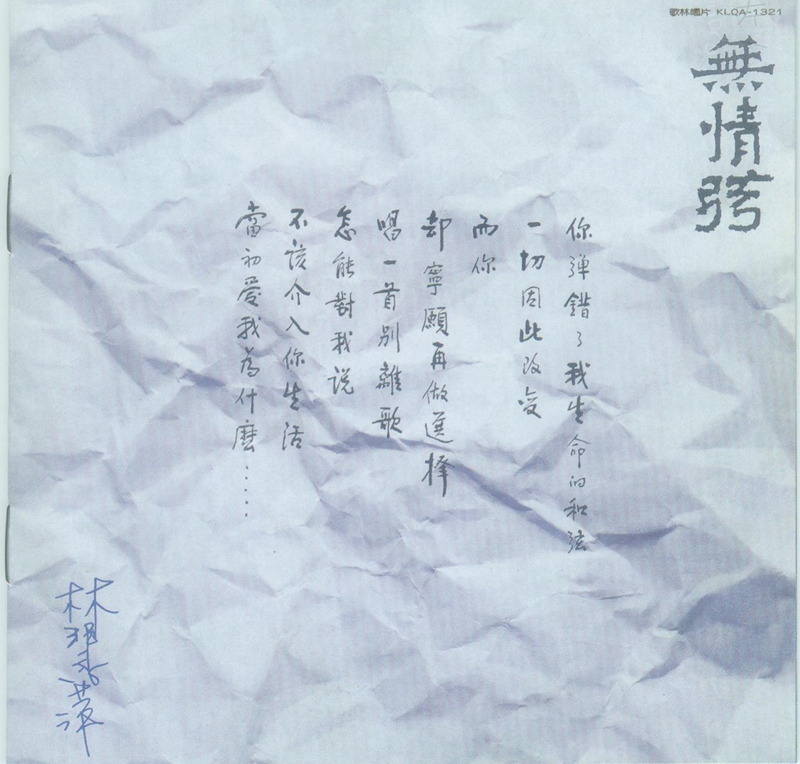 歌林唱片 KLQA-1321
無情弦
你彈錯了我生命的和弦
一切因此改变
而你
却寧願再做選择
唱一首别離歌
怎能對我说
不该介入你生活
當初愛我為什麼……
林
萍